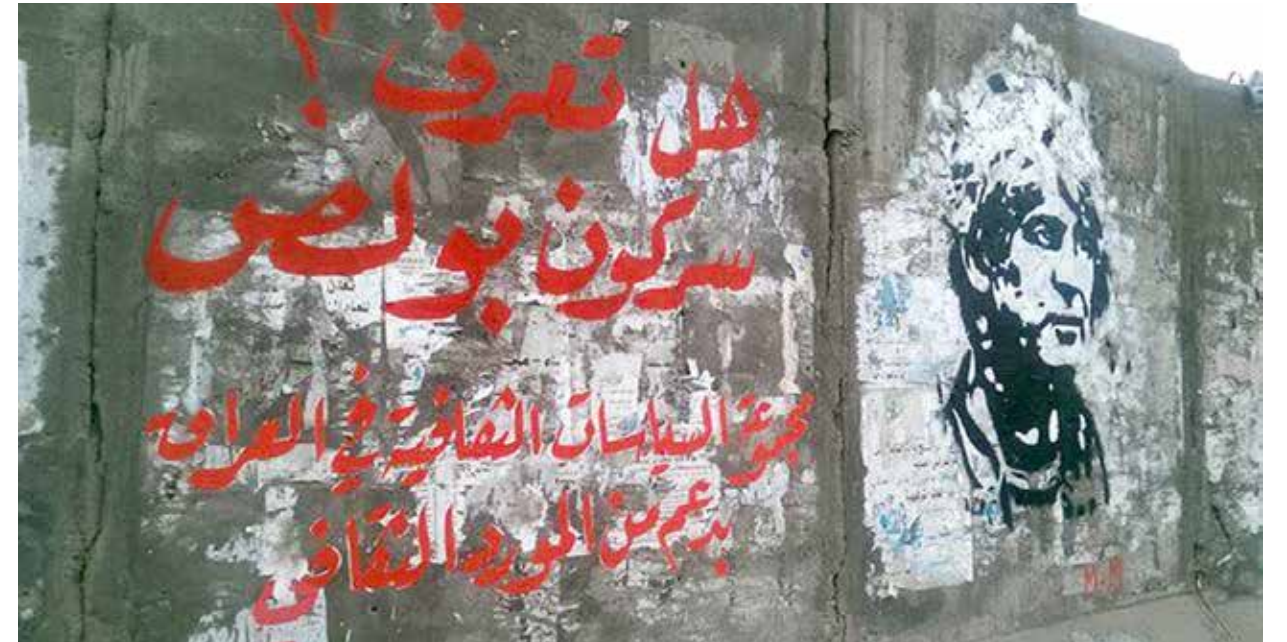 هل تعرف !
سركون بولص
مجموعة السياسات الثقافية في العراق
بدعم من المورد الثقافي
M.M